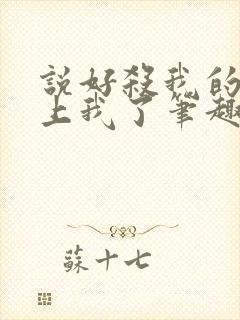 説好殺我的
上我了筆趣
蘇十七